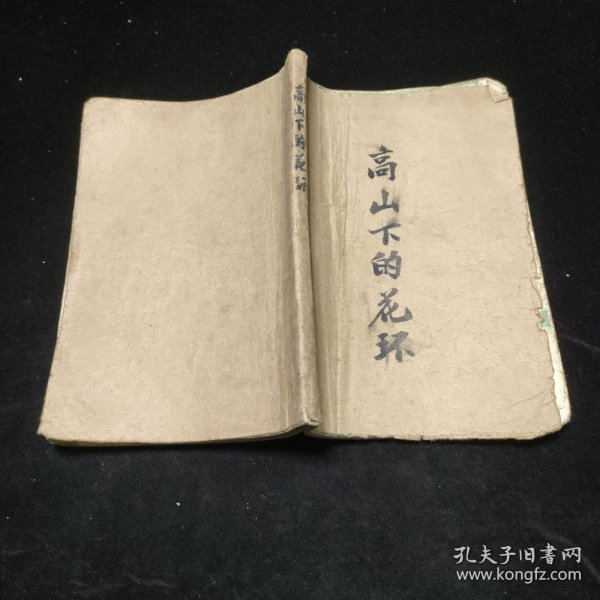 高山下的花环
高山下的花环
孔夫子旧書网
www.kongfz.com